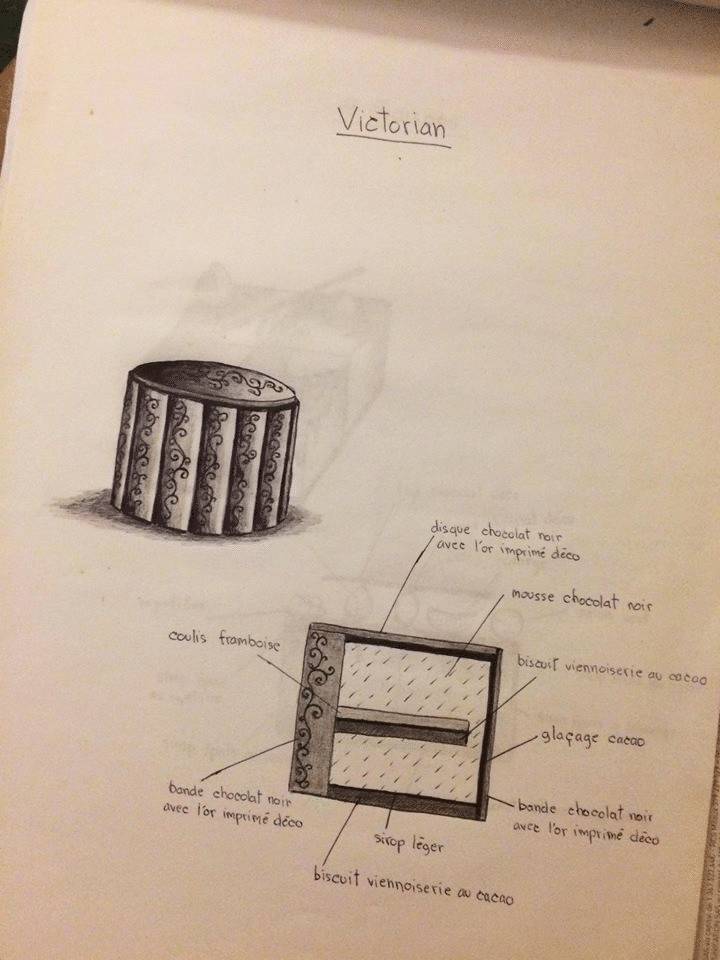 Victorian
disque chocolat noir
avec l'or imprimé déco
mousse chocolat noir
coulis framboise
biscuit viennoiserie au cacao
glaçage cacao
bande chocolat noir
avec l'or imprimé déco
bande chocolat noir
avec l'or imprimé déco
sirop léger
biscuit viennoiserie au cacao